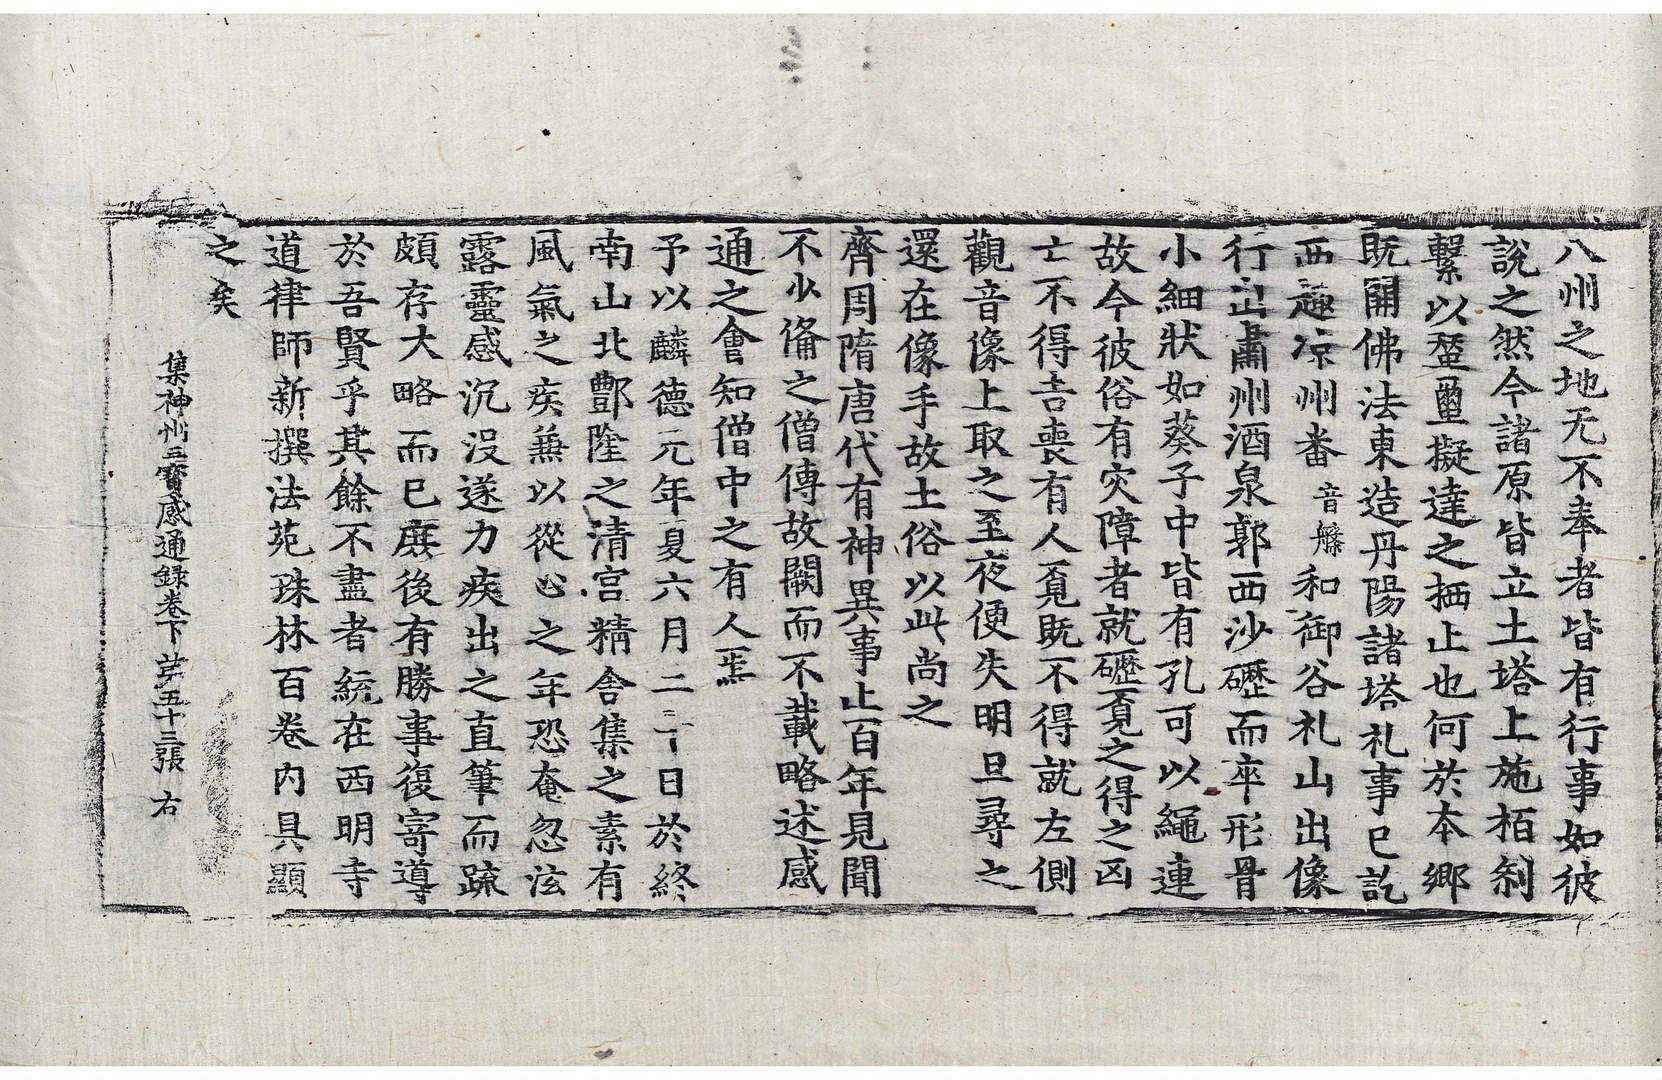 八州之地无不奉者皆有行事如彼
說之然今諸原皆立土塔上施栢刹
繫以蠶璽擬達之捂止也何於本鄉
既開佛法東造丹陽諸塔礼事已訖
西趣凉州番音盤和御谷礼山出像
行出肅州酒泉郭西沙礰而卒形骨
小細狀如葵子中皆有孔可以繩連
故今彼俗有灾障者就礰覔之得之凶
亡不得吉喪有人覔既不得就左側
觀音像上取之至夜便失明旦尋之
還在像手故土俗以此尚之
齊周隋唐代有神異事止百年見聞
不少俻之僧傳故闕而不載略述感
通之會知僧中之有人焉
予以麟德元年夏六月二十日於終
南山北酆陰之清宮精舍集之素有
風氣之疾兼以從心之年恐奄忽泫
露靈感沉没遂力疾出之直筆而疏
頗存大略而已庶後有勝事復寄導
於吾賢乎其餘不盡者統在西明寺
道律師新撰法苑珠林百卷内具顯
之矣
集神州三寶感通録卷下 第五十三張 右